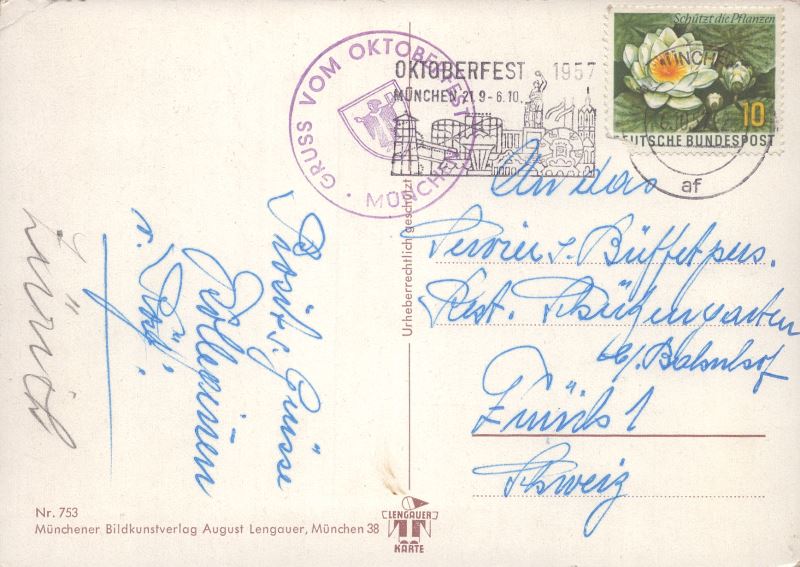 GRUSS VOM OKTOBERFEST · MÜNCHEN ·
OKTOBERFEST 1957
MÜNCHEN 21.9-6.10.
Schützt die Pflanzen
10
DEUTSCHE BUNDESPOST
MÜNCHEN
af
An das
Servier u. Büffetpers.
Rest. Schützengarten
b/Bahnhof
Zürich 1
Schweiz
Prosit u. Grüsse
Kolleginnen
v.
Zürich
Urheberrechtlich geschützt
Nr. 753
Münchener Bildkunstverlag August Lengauer, München 38
LENGAUER
KARTE